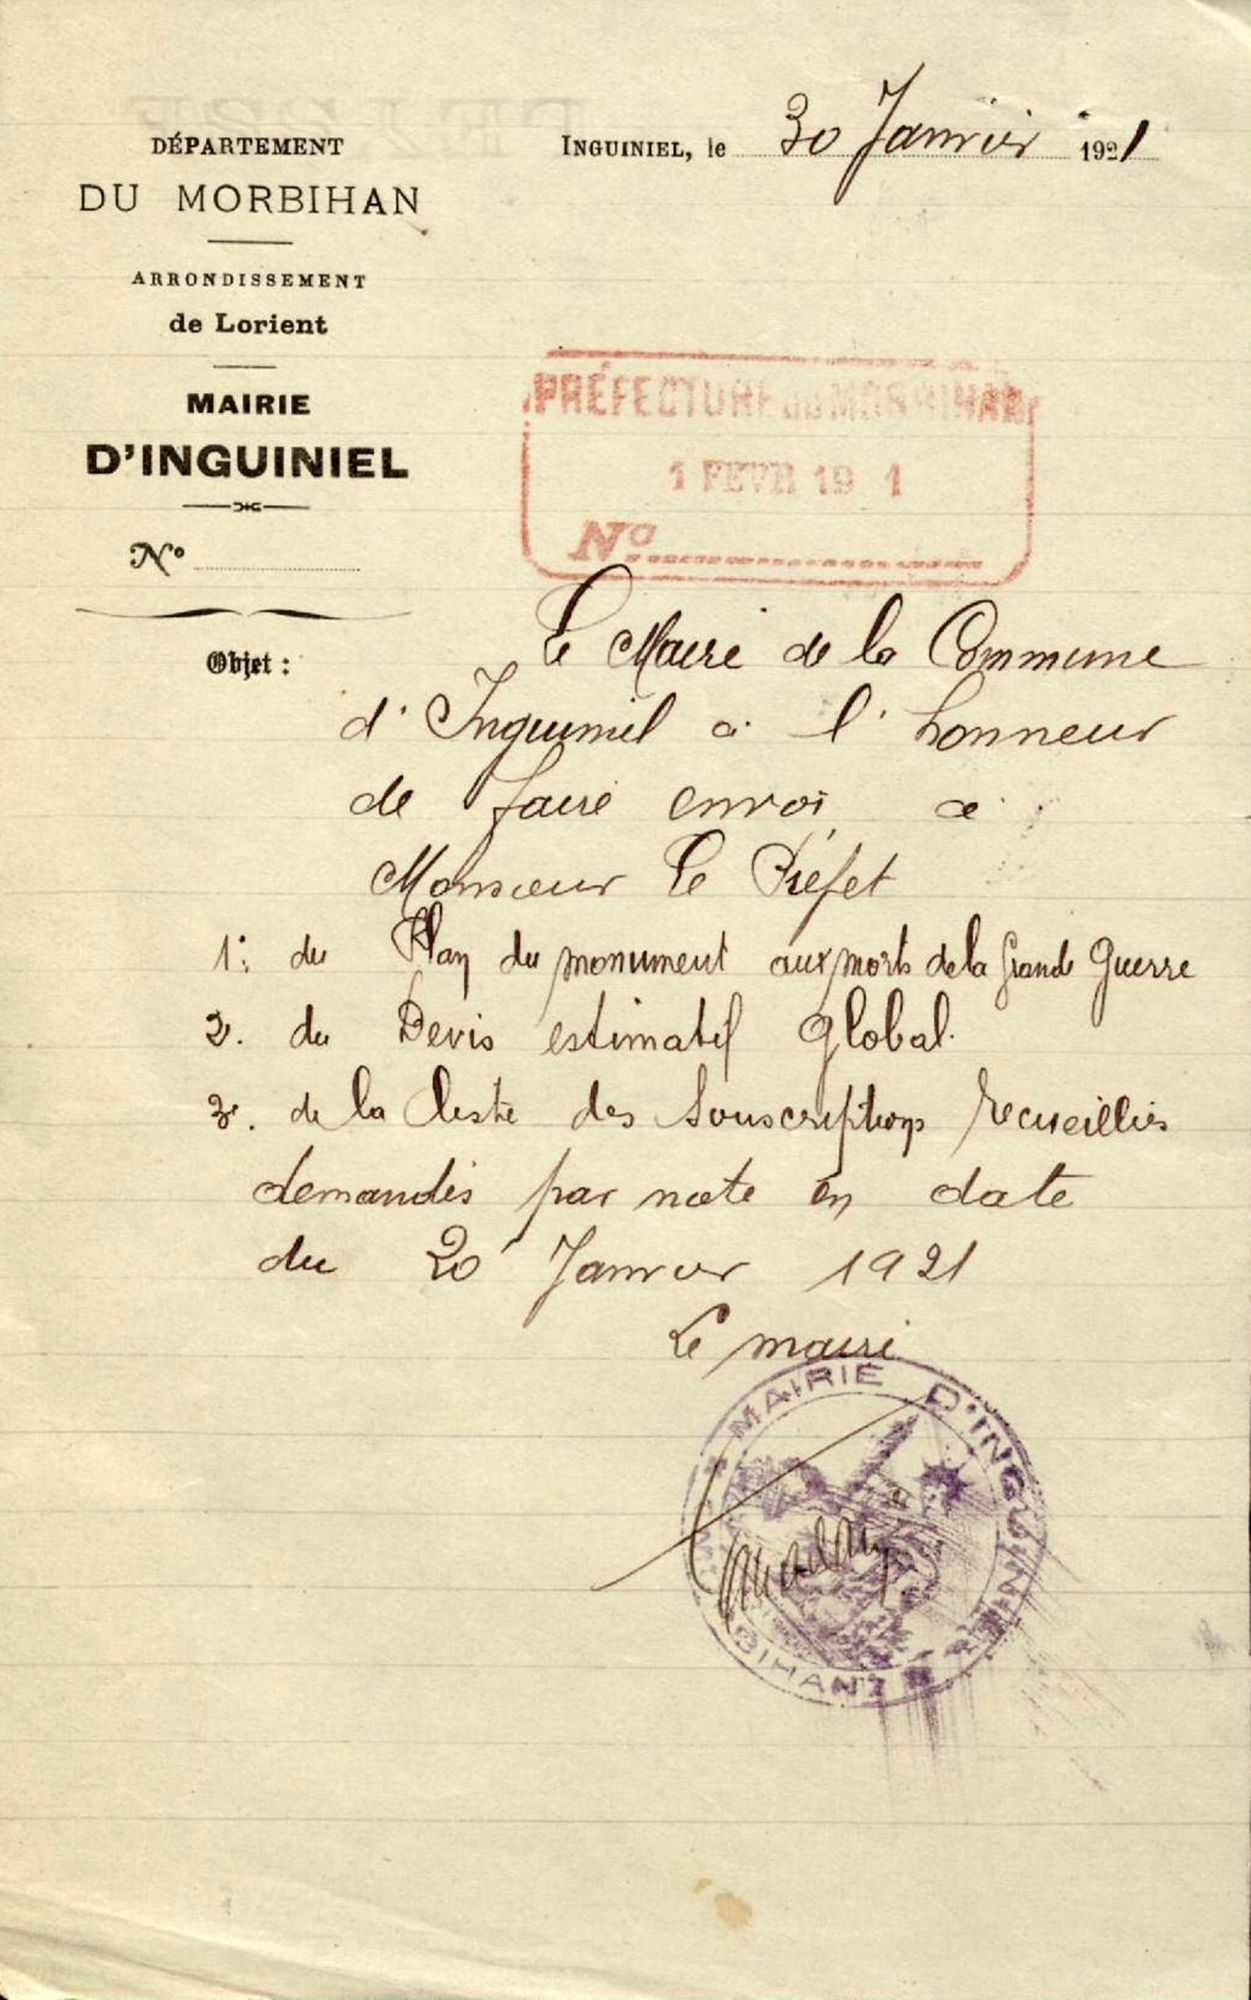 DÉPARTEMENT
DU MORBIHAN
ARRONDISSEMENT
de Lorient
MAIRIE
D'INGUINIEL
N°
Objet :
INGUINIEL, le 30 Janvier 1921
PRÉFECTURE DU MORBIHAN
1 FEVR 19 1
N°
Le Maire de la Commune
d'Inguiniel a l'honneur
de faire envoi à
Monsieur le Préfet
1: du Plan du monument aux morts de la Grande Guerre
2. du Devis estimatif Global.
3. de la liste des Souscriptions recueillies
demandés par note en date
du 20 Janvier 1921
Le maire
MAIRIE D'INGUINIEL
BIHAN